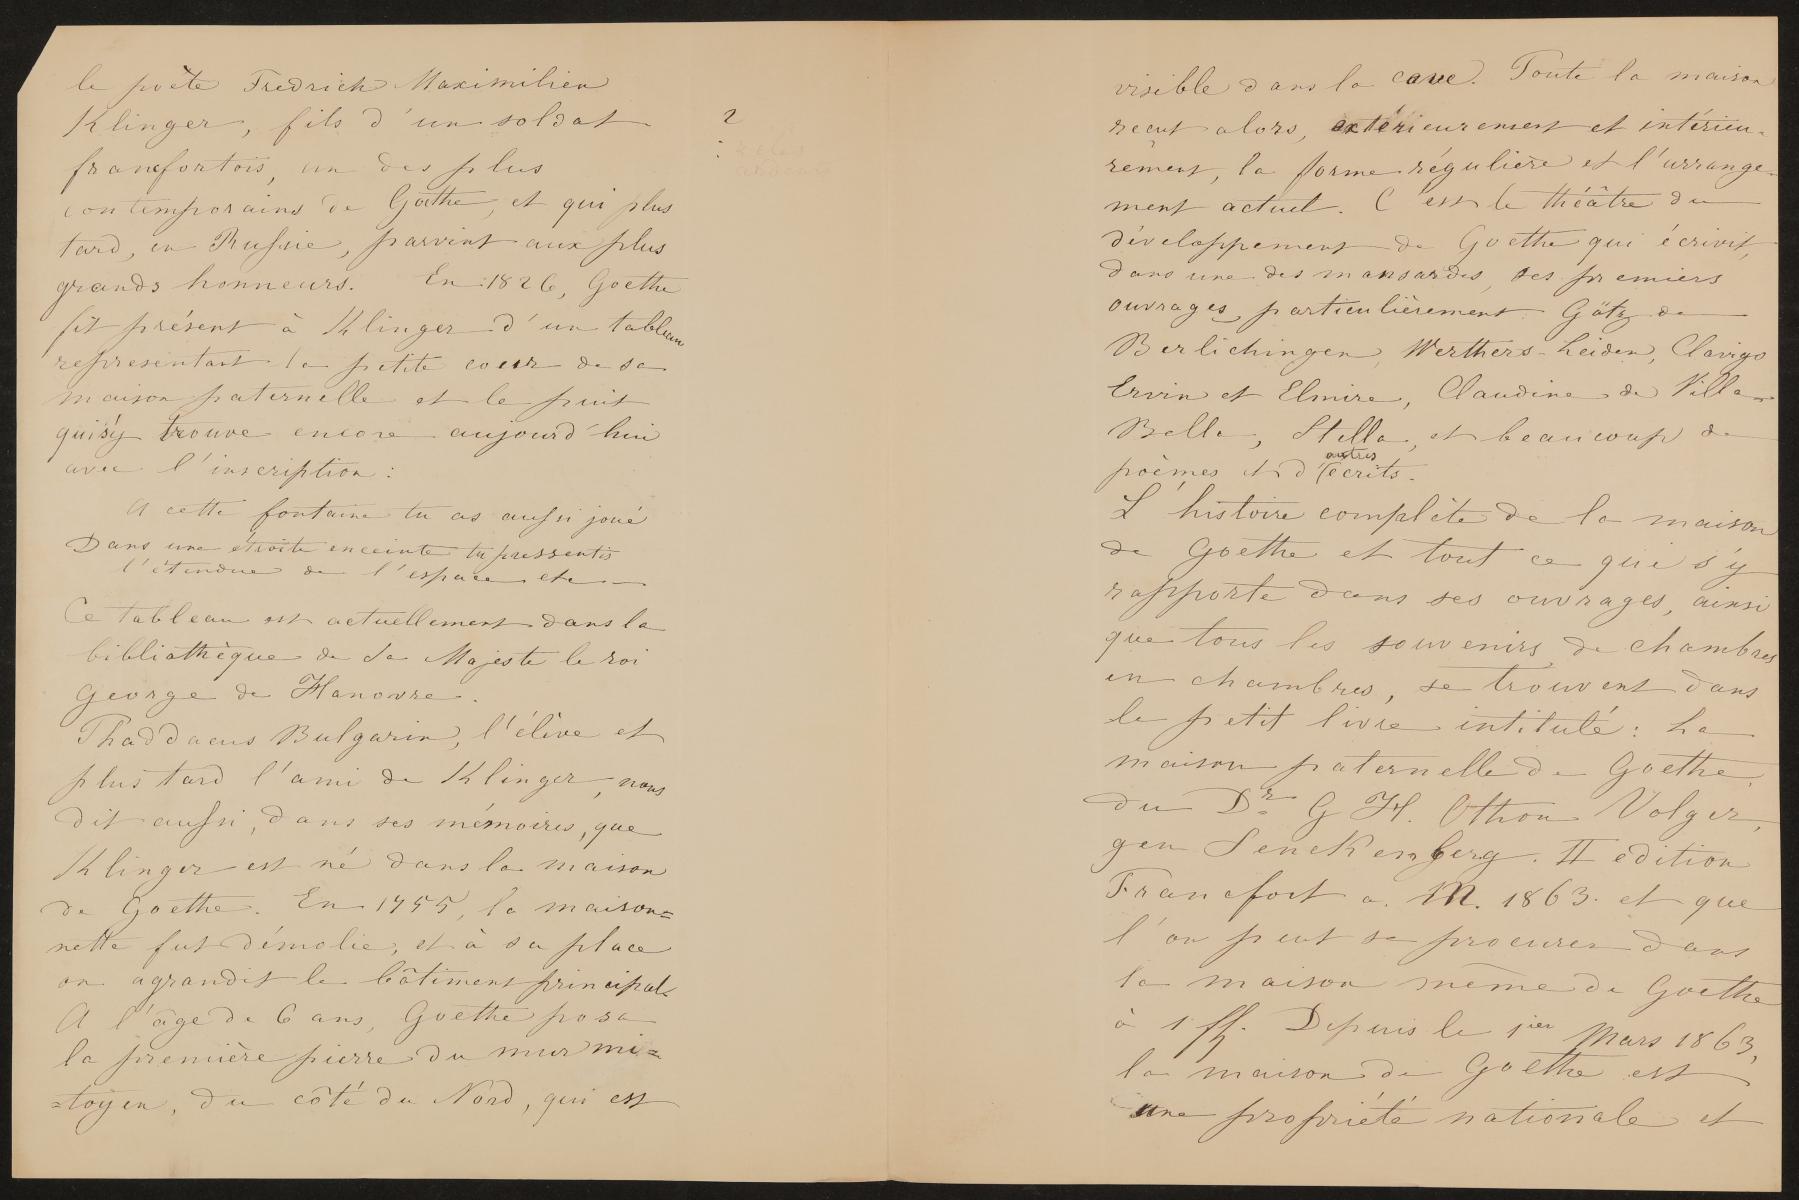 le poète Fredrich Maximilien
Klinger, fils d'un soldat
francfortois, un des plus
contemporains de Göthe, et qui plus
tard, en Russie, parvint aux plus
grands honneurs. En 1826, Goethe
fit présent à Klinger d'un tableau
representant la petite cour de sa
maison paternelle et le puit
qui s'y trouve encore aujourd'hui
avec l'inscription:
A cette fontaine tu as aussi joué
Dans une étroite enceinte tu pressentis
l'étendue de l'espace etc
Ce tableau est actuellement dans la
bibliothèque de Sa Majeste le roi
George de Hanovre.
Thaddaeus Bulgarin, l'élève et
plus tard l'ami de Klinger, nous
dit aussi, dans ses mémoires, que
Klinger est né dans la maison
de Goethe. En 1755, la maison=
nette fut démolie, et à sa place
on agrandit le bâtiment principal.
A l'âge de 6 ans, Goethe posa
la première pierre du mur mi=
=toyen, du côté du Nord, qui est
2
visible dans la cave. Toute la maison
recut alors, extérieurement et intérieu-
rement, la forme régulière et l'arrange-
ment actuel. C'est le théâtre du
développement de Goethe qui écrivit,
dans une des mansardes, ses premiers
ouvrages, particulièrement Götz de
Berlichingen, Werthers-Leiden, Clavigo
Ervin et Elmire, Claudine de Villa-
Bella, Stella, et beaucoup de
poèmes et d'autres écrits.
L'histoire complète de la maison
de Goethe et tout ce qui s'y
rapporte dans ses ouvrages, ainsi
que tous les souvenirs de chambres
en chambres, se trouvent dans
le petit livre intitulé: La
maison paternelle de Goethe,
du Dr G H. Othon Volger,
gen Senckenberg. II edition
Francfort a. M. 1863. et que
l'on peut se procurer dans
la maison même de Goethe
à 1 ff. Depuis le 1ier Mars 1863,
la maison de Goethe est
une propriété nationale et